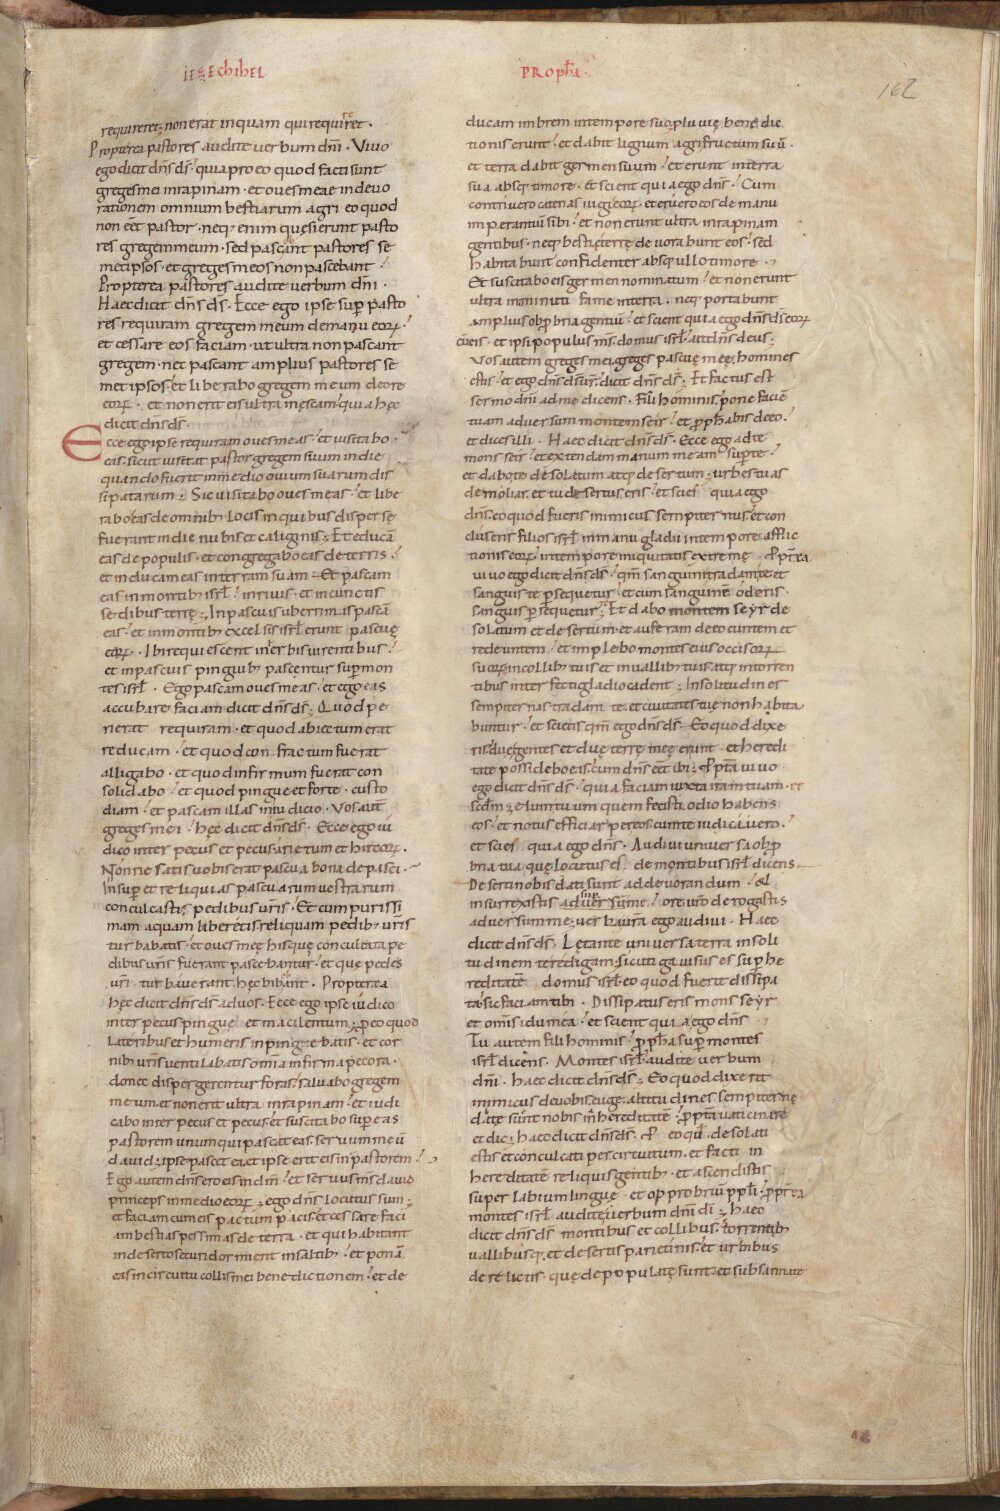 IEZECHIHEL PROPH̄A
162
requireret; non erat inquam qui requireret.
Propterea pastores audite uerbum dn̄i. Viuo
ego dicit dn̄s ds̄. quia pro eo quod facti sunt
greges mei in rapinam. et oues meae in deuo
rationem omnium bestiarum agri eo quod
non eēt pastor. neq; enim quęsierunt pasto
res gregem meum. sed pascant pastores se
met ipsos. et greges meos non pascebant.
Propterea pastores audite uerbum dn̄i.
Haec dicit dn̄s ds̄. Ecce ego ipse sup̄ pasto
res requiram gregem meum de manu eoꝝ.
et cessare eos faciam. ut ultra non pascant
gregem. nec pascant amplius pastores se
met ipsos. et liberabo gregem meum de ore
eoꝝ. et non erit eis ultra in ęscam. quia hęc
dicit dn̄s ds̄.
Ecce ego ipse requiram oues meas. et uisitabo
eas. sicut uisitat pastor gregem suum in die
quando fuerit in medio ouium suarum dis
sipatarum. Sic uisitabo oues meas. et libe
rabo eas de omnib; locis in quibus disperse
fuerant in die nubis et caliginis. Et educā
eas de populis. et congregabo eas de terris.
et inducam eas in terram suam. Et pascam
eas in montib; isrł. in riuis. et in cunctis
sedibus terrę. In pascuis uberrimis pascā
eas. et in montib; excelsis isrł erunt pascuę
eoꝝ. Ibi requiescent in erbis uirentibus.
et in pascuis pinguib; pascentur super mon
tes isrł. Ego pascam oues meas. et ego eas
accubare faciam dicit dn̄s ds̄. Quod pe
rierat requiram. et quod abiectum erat
reducam. et quod confractum fuerat
alligabo. et quod infirmum fuerat con
solidabo. et quod pingue et forte custo
diam. et pascam illas in iudicio. Vos aut̄
greges mei. hęc dicit dn̄s ds̄. Ecce ego iu
dico inter pecus et pecus. arietum et hircoꝝ.
Nonne satis uobis erat pascua bona depasci.
Insup̄ et reliquias pascuarum uestrarum
conculcastis pedibus ur̄is. Et cum purissi
mam aquam biberetis. reliquam pedib; ur̄is
turbabatis. et oues meę hisque conculcata pe
dibus ur̄is fuerant pascebantur. et quę pedes
ur̄i turbauerant. hęc bibebant. Propterea
hęc dicit dn̄s ds̄ ad uos. Ecce ego ipse iudico
inter pecus pingue et macilentum. pro eo quod
lateribus et humeris inpingebatis. et cor
nib; ur̄is uentilabatis omīa infirma pecora.
donec dispergerentur foras. saluabo gregem
meum. et non erit ultra in rapinam. et iudi
cabo inter pecus et pecus. et suscitabo super eas
pastorem unum qui pascat eas. seruum meū
dauid. ipse pascet ei. et ipse erit eis in pastorem.
Ego autem dn̄s ero eis in dm̄. et seruus ms̄ dauid
princeps in medio eoꝝ. ego dn̄s locutus sum.
et faciam cum eis pactum pacis. et cessare faci
am bestias pessimas de terra. et qui habitant
in deserto securi dormient in saltib;. et ponā
eas in circuitu collis mei benedictionem. et de
ducam imbrem in tempore suo. pluuię bene die
tionis erunt. et dabit lignum agri fructum suū.
et terra dabit germen suum. et erunt in terra
sua absq; timore. et scient quia ego dn̄s. Cum
contriuero catenas iugi eoꝝ. et eruero eos de manu
imperantum sibi. et non erunt ultra in rapinam
gentibus. neq; bestię terrę deuorabunt eos. sed
habitabunt confidenter absq; ullo timore.
Et suscitabo eis germen nominatum. et non erunt
ultra inminuti fame in terra. neq; portabunt
amplius obprobria gentiū. et scient quia ego dn̄s ds̄ eoꝝ
cū eis. et ipsi populus ms̄ domus isrł. ait dn̄s deus.
Vos autem greges mei. greges pascuę meę. homines
estis. et ego dn̄s ds̄ ur̄. dicit dn̄s ds̄. Et factus est
sermo dn̄i ad me dicens. Fili hominis. pone faciē
tuam aduersum montem seir. et prophabis de eo.
et dices illi. Haec dicit dn̄s ds̄. Ecce ego ad te
mons seir. et extendam manum meam super te.
et dabo te desolatum atq; desertum. urbes tuas
demoliar. et tu desertus eris. et scies quia ego
dn̄s. eo quod fueris inimicus sempiternus. et con
cluseris filios isrł in manu gladii in tempore afflic
tionis eoꝝ. in tempore iniquitatis extremę. Ppterea
uiuo ego dicit dn̄s ds̄. qm̄ sanguini tradam te. et
sanguis te psequetur. et cum sanguinē oderis.
sanguis psequetur. Et dabo montem seyr de
solatum et desertum. et auferam de eo euntem et
redeuntem. et implebo montes eius occisoꝝ
suoꝝ. in collib; tuis et in uallib; tuis atq; in torren
tibus interfecti gladio cadent. In solitudines
sempiternas tradam te. et ciuitates tuę non habita
buntur. et scietis qm̄ ego dn̄s ds̄. Eo quod dixe
ris. duę gentes et duę terrę meę erunt. et heredi
tate possidebo eas. cum dn̄s eēt ibi. Ppt̄a uiuo
ego dicit dn̄s ds̄. quia faciam iuxta iram tuam. et
scdm̄ zelum tuum quem fecisti. odio habens
eos. et notus efficiar per eos. cum te iudicauero.
et scies quia ego dn̄s. Audiui uniuersa obp
bria tua. quę locutus es de montibus isrł dicens.
Deserti nobis dati sunt ad deuorandum. et
insurrexistis super me ore ur̄o. derogastis
aduersum me. uerba ur̄a ego audiui. Haec
dicit dn̄s ds̄. Lętante uniuersa terra in soli
tudinem te redigam. sicuti gauisus es sup̄ he
reditatē domus isrł. eo quod fuerit dissipa
ta. sic faciam tibi. Dissipatus eris mons seyr
et omīs idumea. et scient quia ego dn̄s
Tu autem fili hominis. ppha sup̄ montes
isrł dicens. Montes isrł audite uerbum
dn̄i. haec dicit dn̄s ds̄. Eo quod dixerit
inimicus de uobis. euge. altitudines sempiternę
datę sunt nobis in hereditatē. ppt̄a uaticinare
et dic. haec dicit dn̄s ds̄. P eo qd̄ desolati
estis et conculcati per circuitum. et facti in
hereditatē reliquis gentib;. et ascendistis
super labium linguę et opprobriū ppłi. ppt̄ea
montes isrł. audite uerbum dn̄i dī. haec
dicit dn̄s ds̄ montibus et collibus. torrentib;
uallibusq;. et desertis parietinis. et urbibus
derelictis. quę depopulatę sunt. et subsannatę